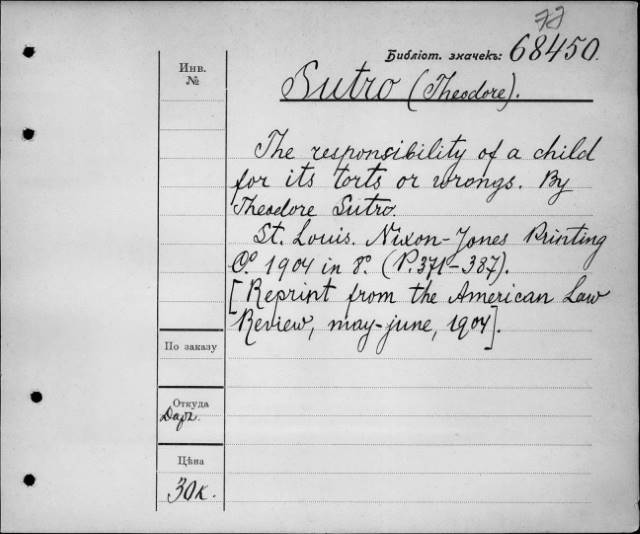 Библіот. значекъ: 68450.
Инв.
№
Sutro (Theodore).
The responsibility of a child
for its torts or wrongs. By
Theodore Sutro.
St. Louis. Nixon-Jones Printing
Co. 1904 in 8°. (P. 371-387).
[Reprint from the American Law
Review, may-june, 1904].
По заказу
Откуда
Даръ.
Цѣна
30 к.